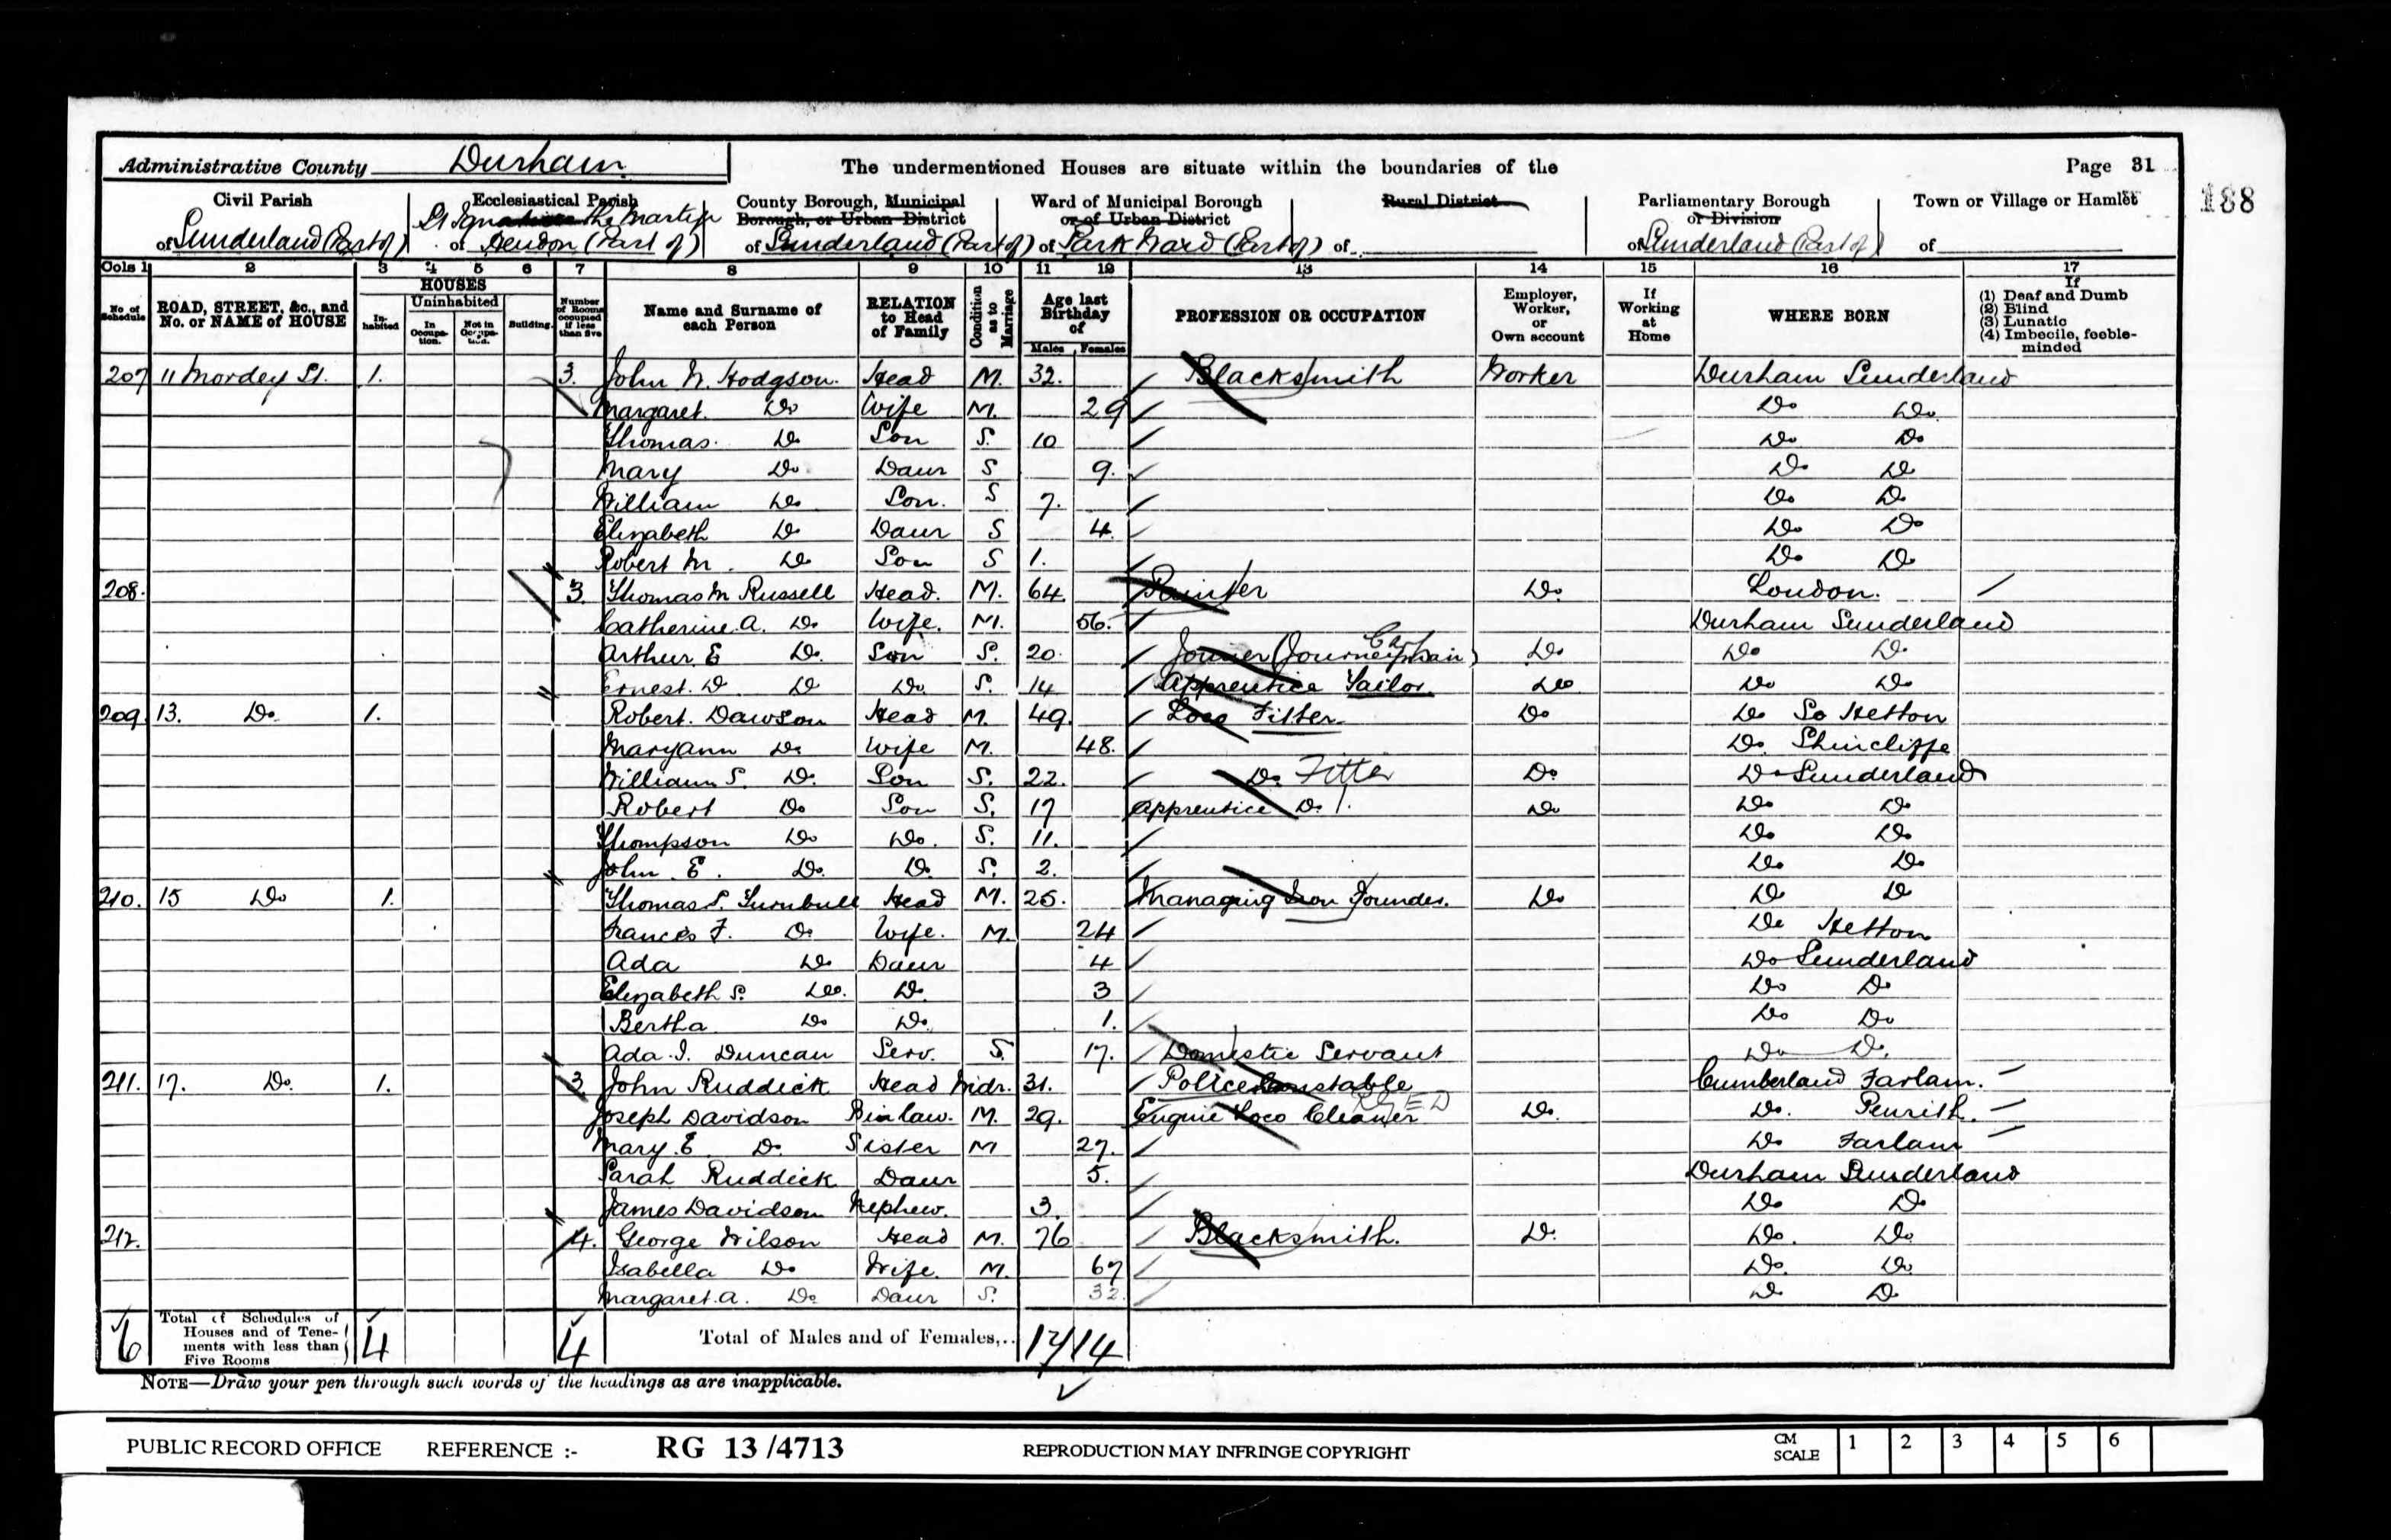 Administrative County Durham. The undermentioned Houses are situate within the boundaries of the Page 31
188
Civil Parish Ecclesiastical Parish County Borough, Municipal Ward of Municipal Borough Rural District Parliamentary Borough Town or Village or Hamlet
St Ignatius the Martyr Borough, or Urban District or of Urban District or Division
of Sunderland (Part of) of Hendon (Part of) of Sunderland (Part of) of Park Ward (Part of) of of Sunderland (Part of) of
Cols 1 2 3 4 5 6 7 8 9 10 11 12 13 14 15 16 17
No of Schedule ROAD, STREET, &c., and No. or NAME of HOUSE HOUSES Inhabited Uninhabited In Occupation. Not in Occupation. Building. Number of Rooms occupied if less than five Name and Surname of each Person RELATION to Head of Family Condition as to Marriage Age last Birthday of Males Females PROFESSION OR OCCUPATION Employer, Worker, or Own account If Working at Home WHERE BORN If (1) Deaf and Dumb (2) Blind (3) Lunatic (4) Imbecile, feeble-minded
207 11 Mordey St. 1. 3. John W. Hodgson. Head M. 32. Blacksmith Worker Durham Sunderland
Margaret. Do Wife M. 29 Do Do
Thomas. Do Son S. 10 Do Do
Mary Do Daur S 9. Do Do
William Do Son. S 7. Do Do
Elizabeth Do Daur S 4 Do Do
Robert M. Do Son S 1. Do Do
208. 3. Thomas M Russell Head. M. 64 Painter Do. London.
Catherine. A. Do Wife. M. 56. Durham Sunderland
Arthur. E Do. Son S. 20 Joiner (Journeyman) Carp Do Do Do
Ernest. W Do Do. S. 14 Apprentice Sailor Do Do Do
209. 13. Do. 1. Robert. Dawson Head M. 49. Loco Fitter Do Do So Hetton
Maryann Do Wife M. 48. Do. Shincliffe
William S. Do. Son S. 22. Do. Fitter Do Do Sunderland
Robert Do Son S. 17 Apprentice Do. Do Do Do
Thompson Do Do. S. 11. Do Do
John. E. Do. Do. S. 2. Do Do
210. 15 Do 1. Thomas S. Turnbull Head M. 25. Managing Iron Founder. Do Do Do
Frances F. Do Wife. M. 24 Do Hetton
Ada Do Daur 4 Do Sunderland
Elizabeth S. Do. Do. 3 Do Do
Bertha Do Do. 1. Do Do
Ada. I. Duncan Serv. S. 17. Domestic Servant Do Do.
211. 17. Do. 1. 3 John Ruddick Head Widr. 31. Police Constable Cumberland Farlam.
Joseph Davidson B in law. M. 29. Engine Loco Cleaner Do. Do. Penrith.
Mary. E Do. Sister M 27. Do Farlam
Sarah Ruddick Daur 5. Durham Sunderland
James Davidson Nephew. 3. Do Do
212. 4. George Wilson Head M. 76 Blacksmith. Do. Do. Do
Isabella Do Wife. M. 67 Do. Do
Margaret. A. Do Daur S. 32. Do Do
6 Total of Schedules of Houses and of Tenements with less than Five Rooms 4 4 Total of Males and of Females,.. 17 14
NOTE—Draw your pen through such words of the headings as are inapplicable.
PUBLIC RECORD OFFICE REFERENCE :- RG 13 /4713 REPRODUCTION MAY INFRINGE COPYRIGHT CM SCALE 1 2 3 4 5 6